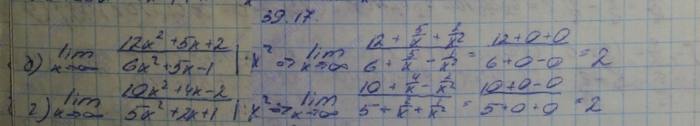 39.17.
б) lim x→∞ (12x² + 5x + 2)/(6x² + 5x - 1) | : x² => lim x→∞ (12 + 5/x + 2/x²)/(6 + 5/x - 1/x²) = (12 + 0 + 0)/(6 + 0 - 0) = 2
г) lim x→∞ (10x² + 4x - 2)/(5x² + 2x + 1) | : x² => lim x→∞ (10 + 4/x - 2/x²)/(5 + 2/x + 1/x²) = (10 + 0 - 0)/(5 + 0 + 0) = 2